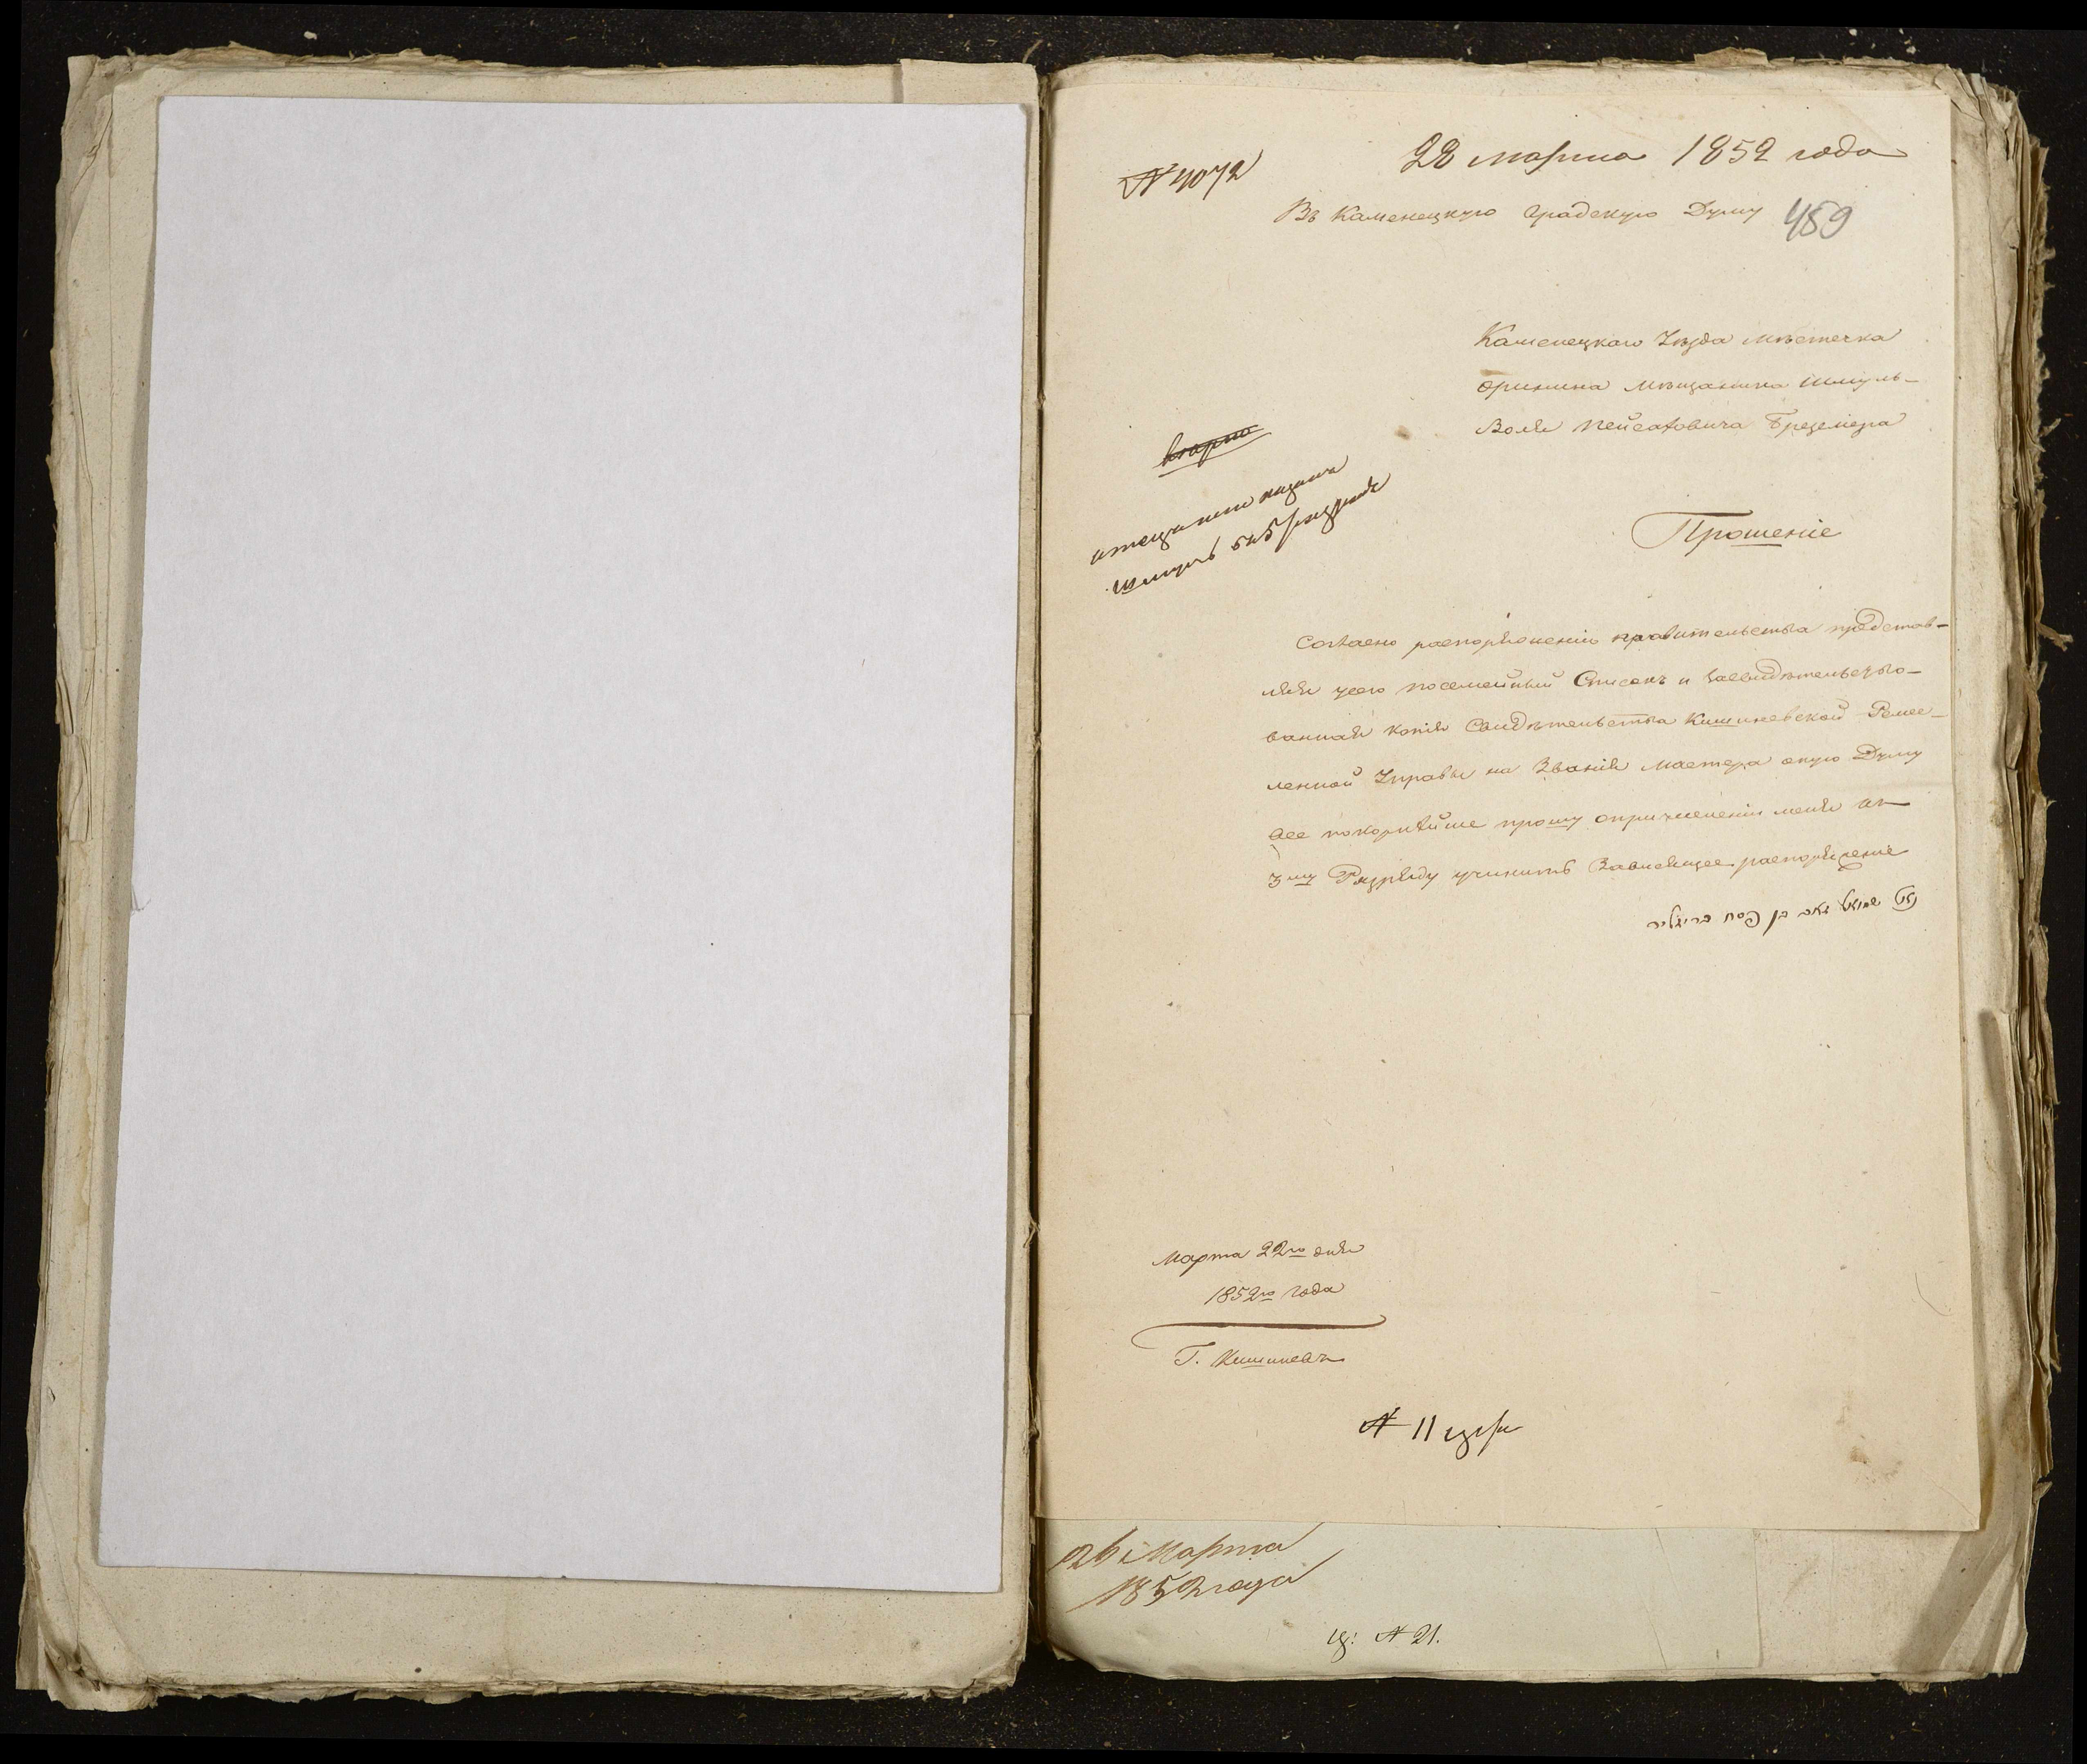 № 4072
28 марта 1852 года
Въ Каменецкую градскую Думу
459
Каменецкаго Уѣзда мѣстечка
Оринина мѣщанина Шмуль-
Воля Пейсаховича
Прошеніе
Согласно распоряженію правительства представ-
ляя у сего посемейный Списокъ и засвидѣтельство-
ванная копія Свидѣтельства Кишиневской Ремес-
ленной Управы на Званія мастера оную Думу
все покорнѣйше прошу о причисленіи меня къ
3му Разряду учинить Зависящее распоряженіе
שמואל זאב בן פסח
Марта 22го дня
1852го года
Г. Кишиневъ
№ 11
26 Марта
1852 года
№ 21.